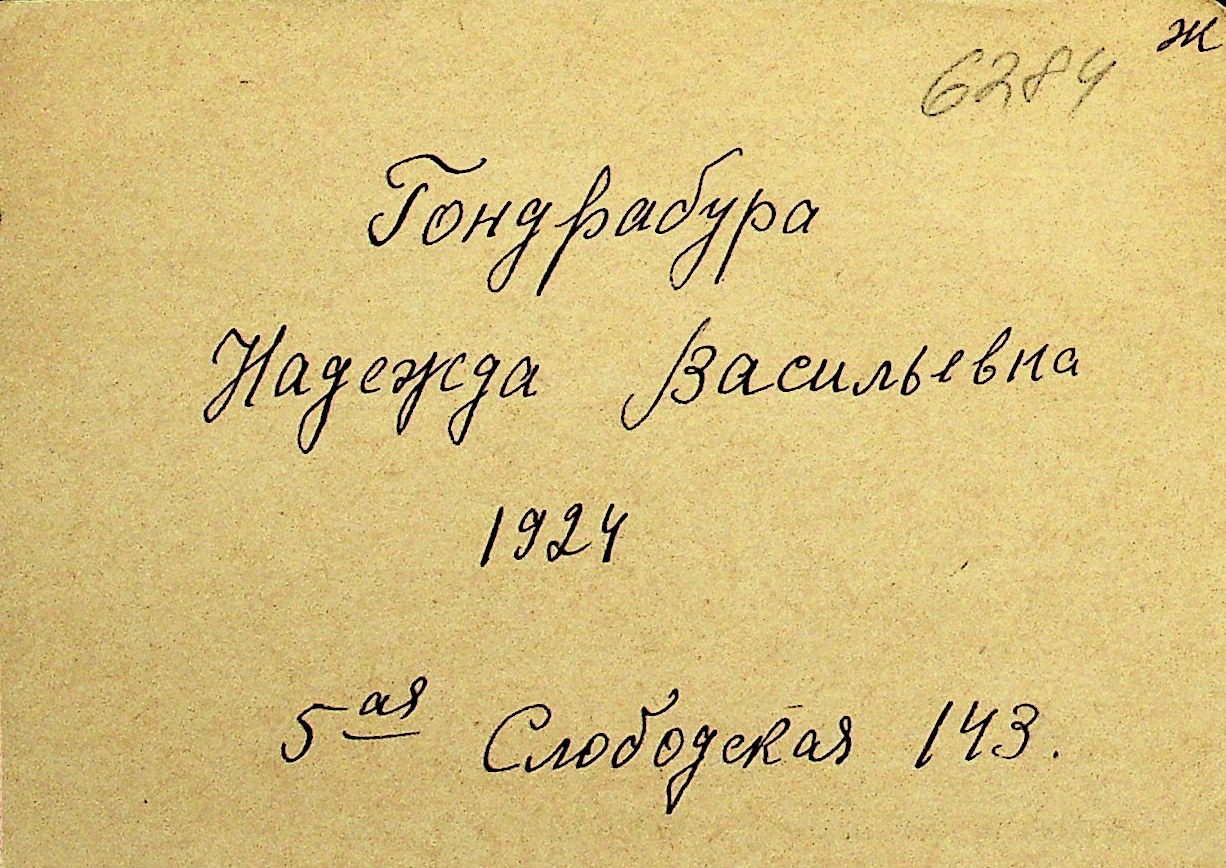 ж
6284
Гондрабура
Надежда Васильевна
1924
5ая Слободская 143.